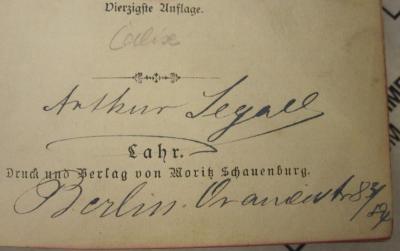 Vierzigste Auflage.
Calix
Arthur Segall
Lahr.
Druck und Verlag von Moritz Schauenburg.
Berlin. Oranienstr 83/84